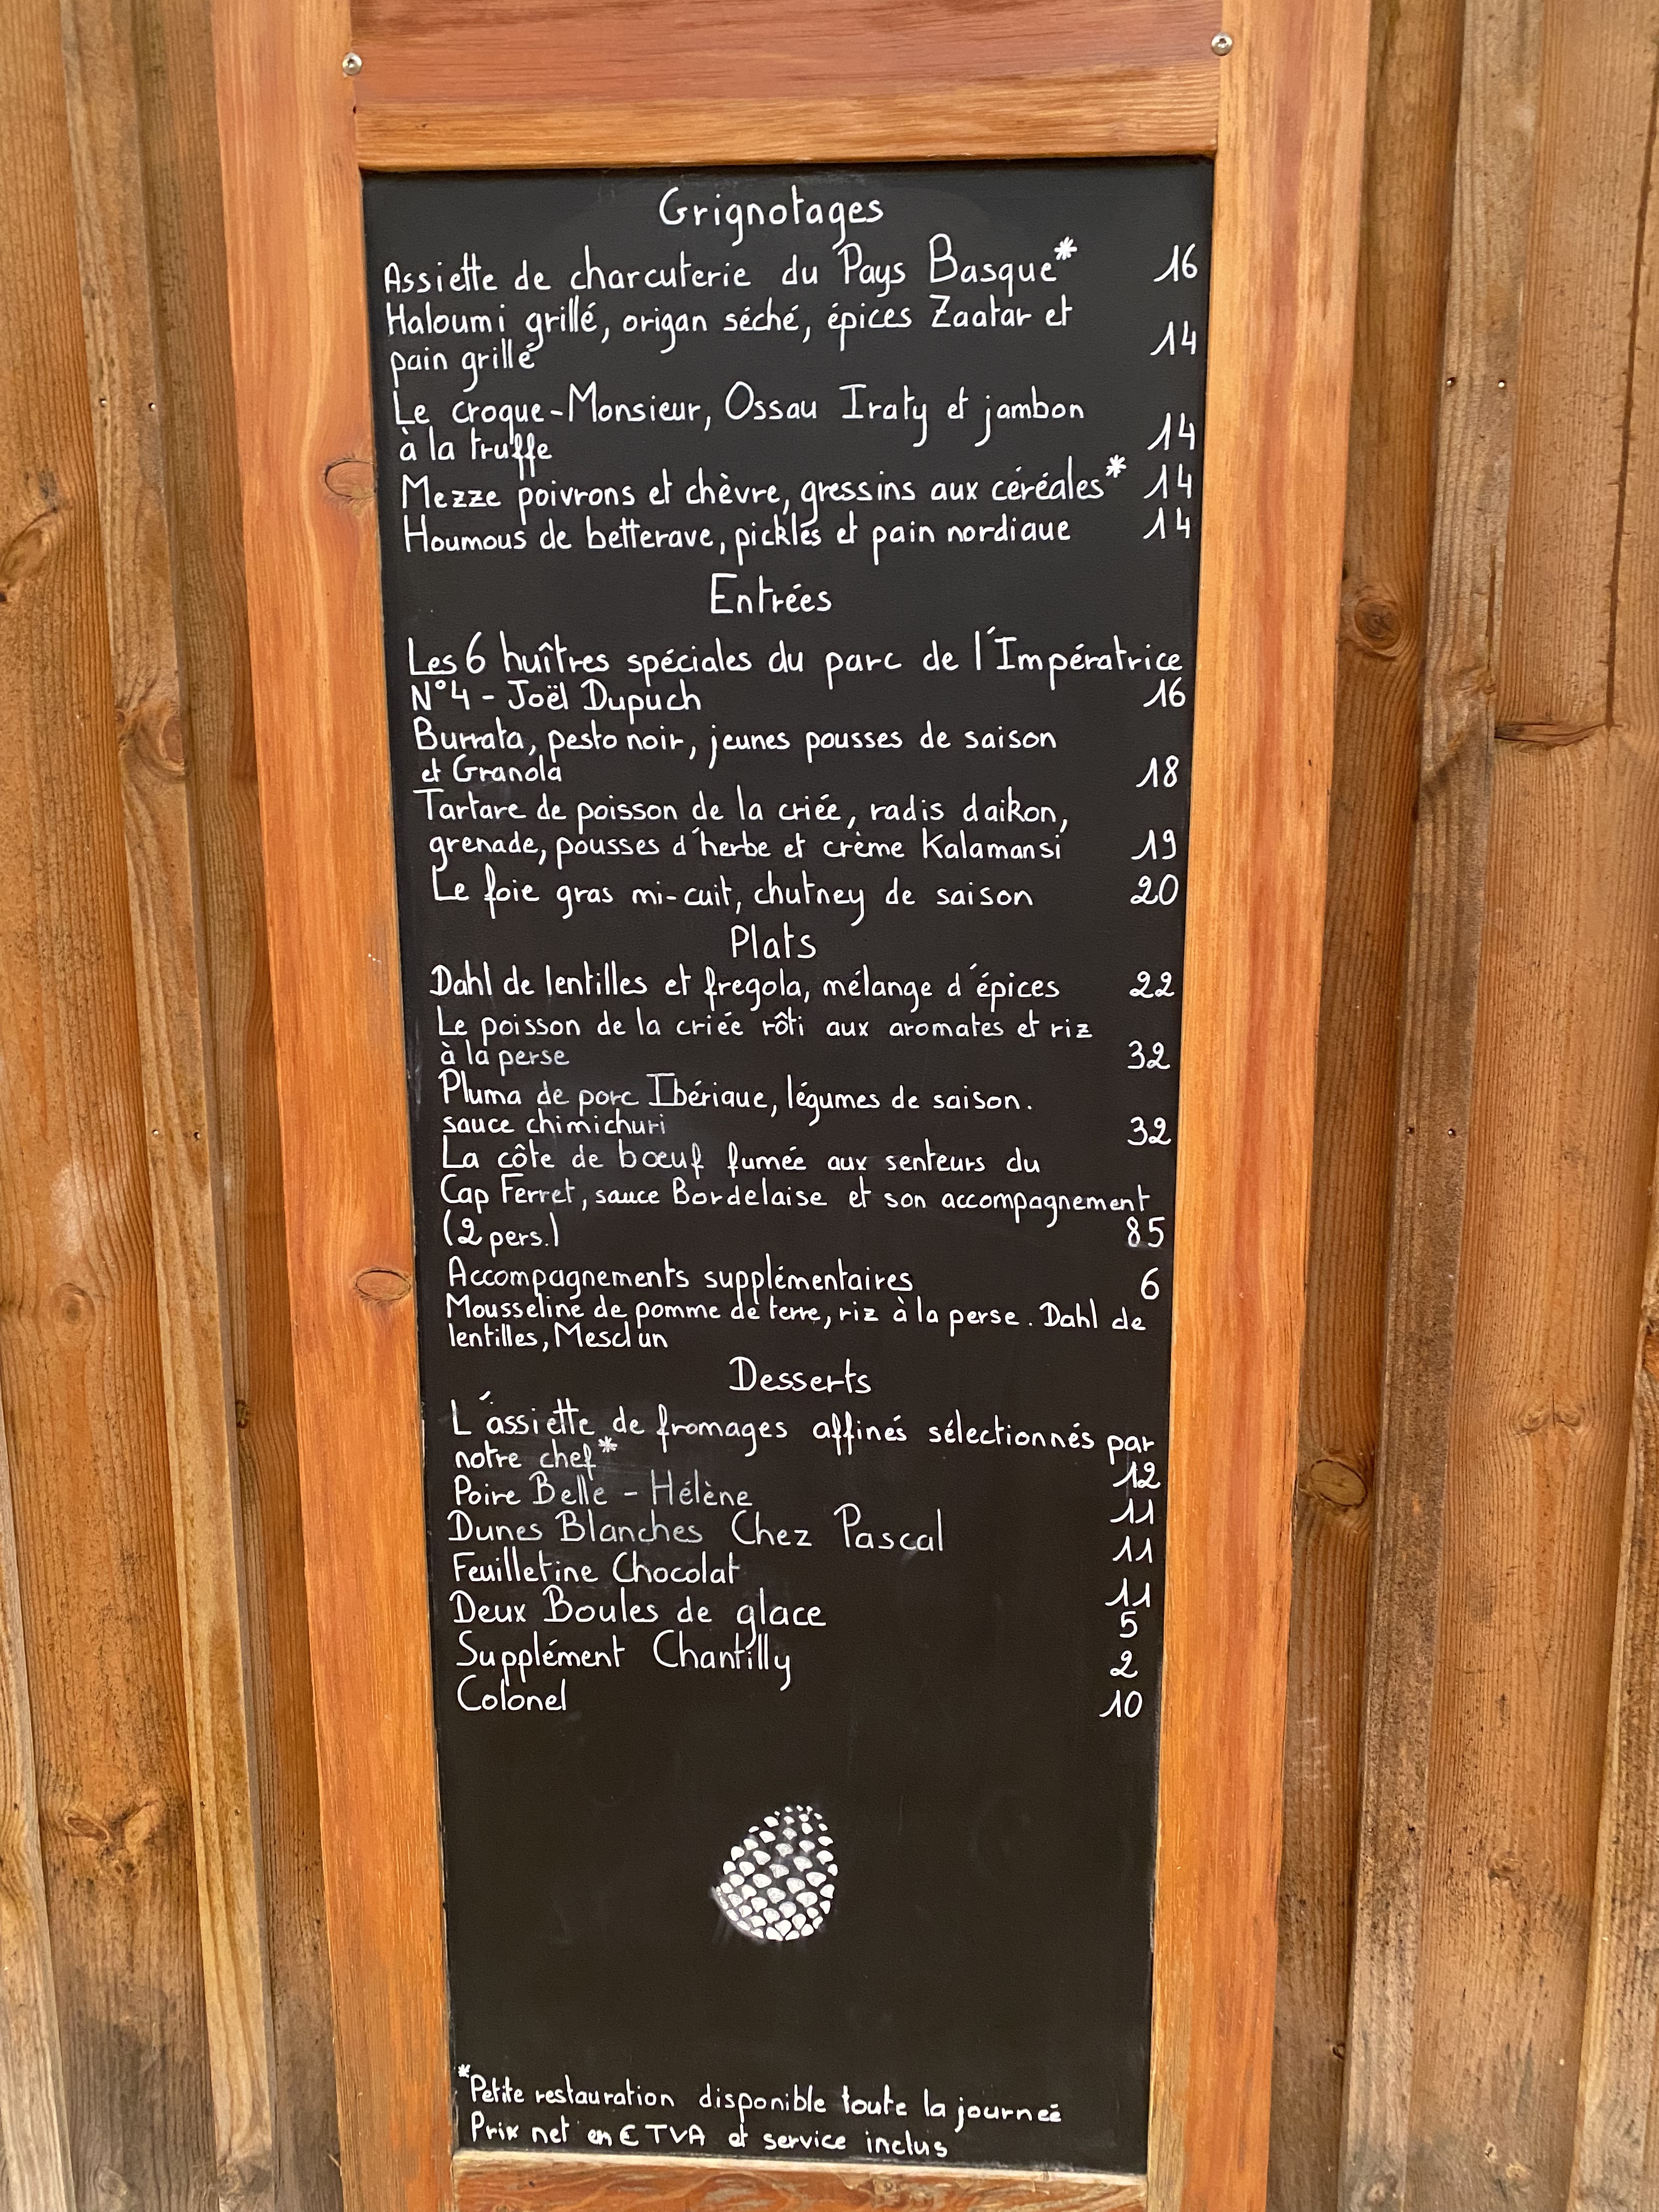 Grignotages
Assiette de charcuterie du Pays Basque* 16
Haloumi grillé, origan séché, épices Zaatar et
pain grillé 14
Le croque-Monsieur, Ossau Iraty et jambon
à la truffe 14
Mezze poivrons et chèvre, gressins aux céréales* 14
Houmous de betterave, pickles et pain nordiaue 14
Entrées
Les 6 huîtres spéciales du parc de l'Impératrice
N°4 - Joël Dupuch 16
Burrata, pesto noir, jeunes pousses de saison
et Granola 18
Tartare de poisson de la criée, radis daikon,
grenade, pousses d'herbe et crème Kalamansi 19
Le foie gras mi-cuit, chutney de saison 20
Plats
Dahl de lentilles et fregola, mélange d'épices 22
Le poisson de la criée rôti aux aromates et riz
à la perse 32
Pluma de porc Ibérique, légumes de saison.
sauce chimichuri 32
La côte de bœuf fumée aux senteurs du
Cap Ferret, sauce Bordelaise et son accompagnement
(2 pers.) 85
Accompagnements supplémentaires 6
Mousseline de pomme de terre, riz à la perse. Dahl de
lentilles, Mesclun
Desserts
L'assiette de fromages affinés sélectionnés par
notre chef* 12
Poire Belle - Hélène 11
Dunes Blanches Chez Pascal 11
Feuilletine Chocolat 11
Deux Boules de glace 5
Supplément Chantilly 2
Colonel 10
*Petite restauration disponible toute la journeé
Prix net en € TVA et service inclus